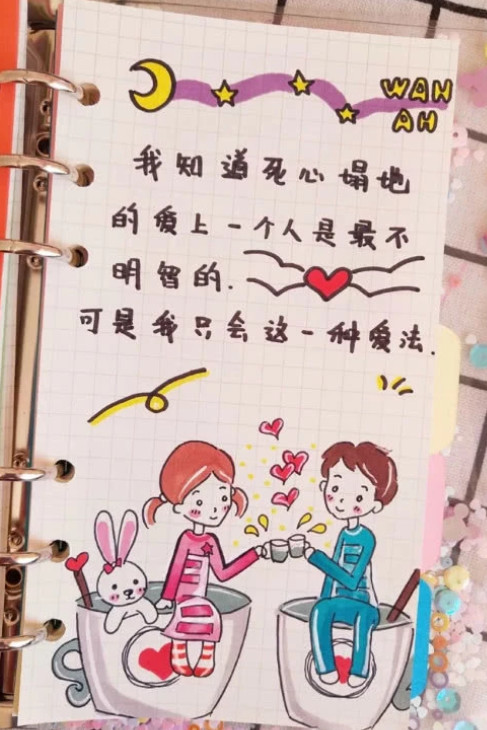 WAH
AH
我知道死心塌地
的爱上一个人是最不
明智的.
可是我只会这一种爱法.